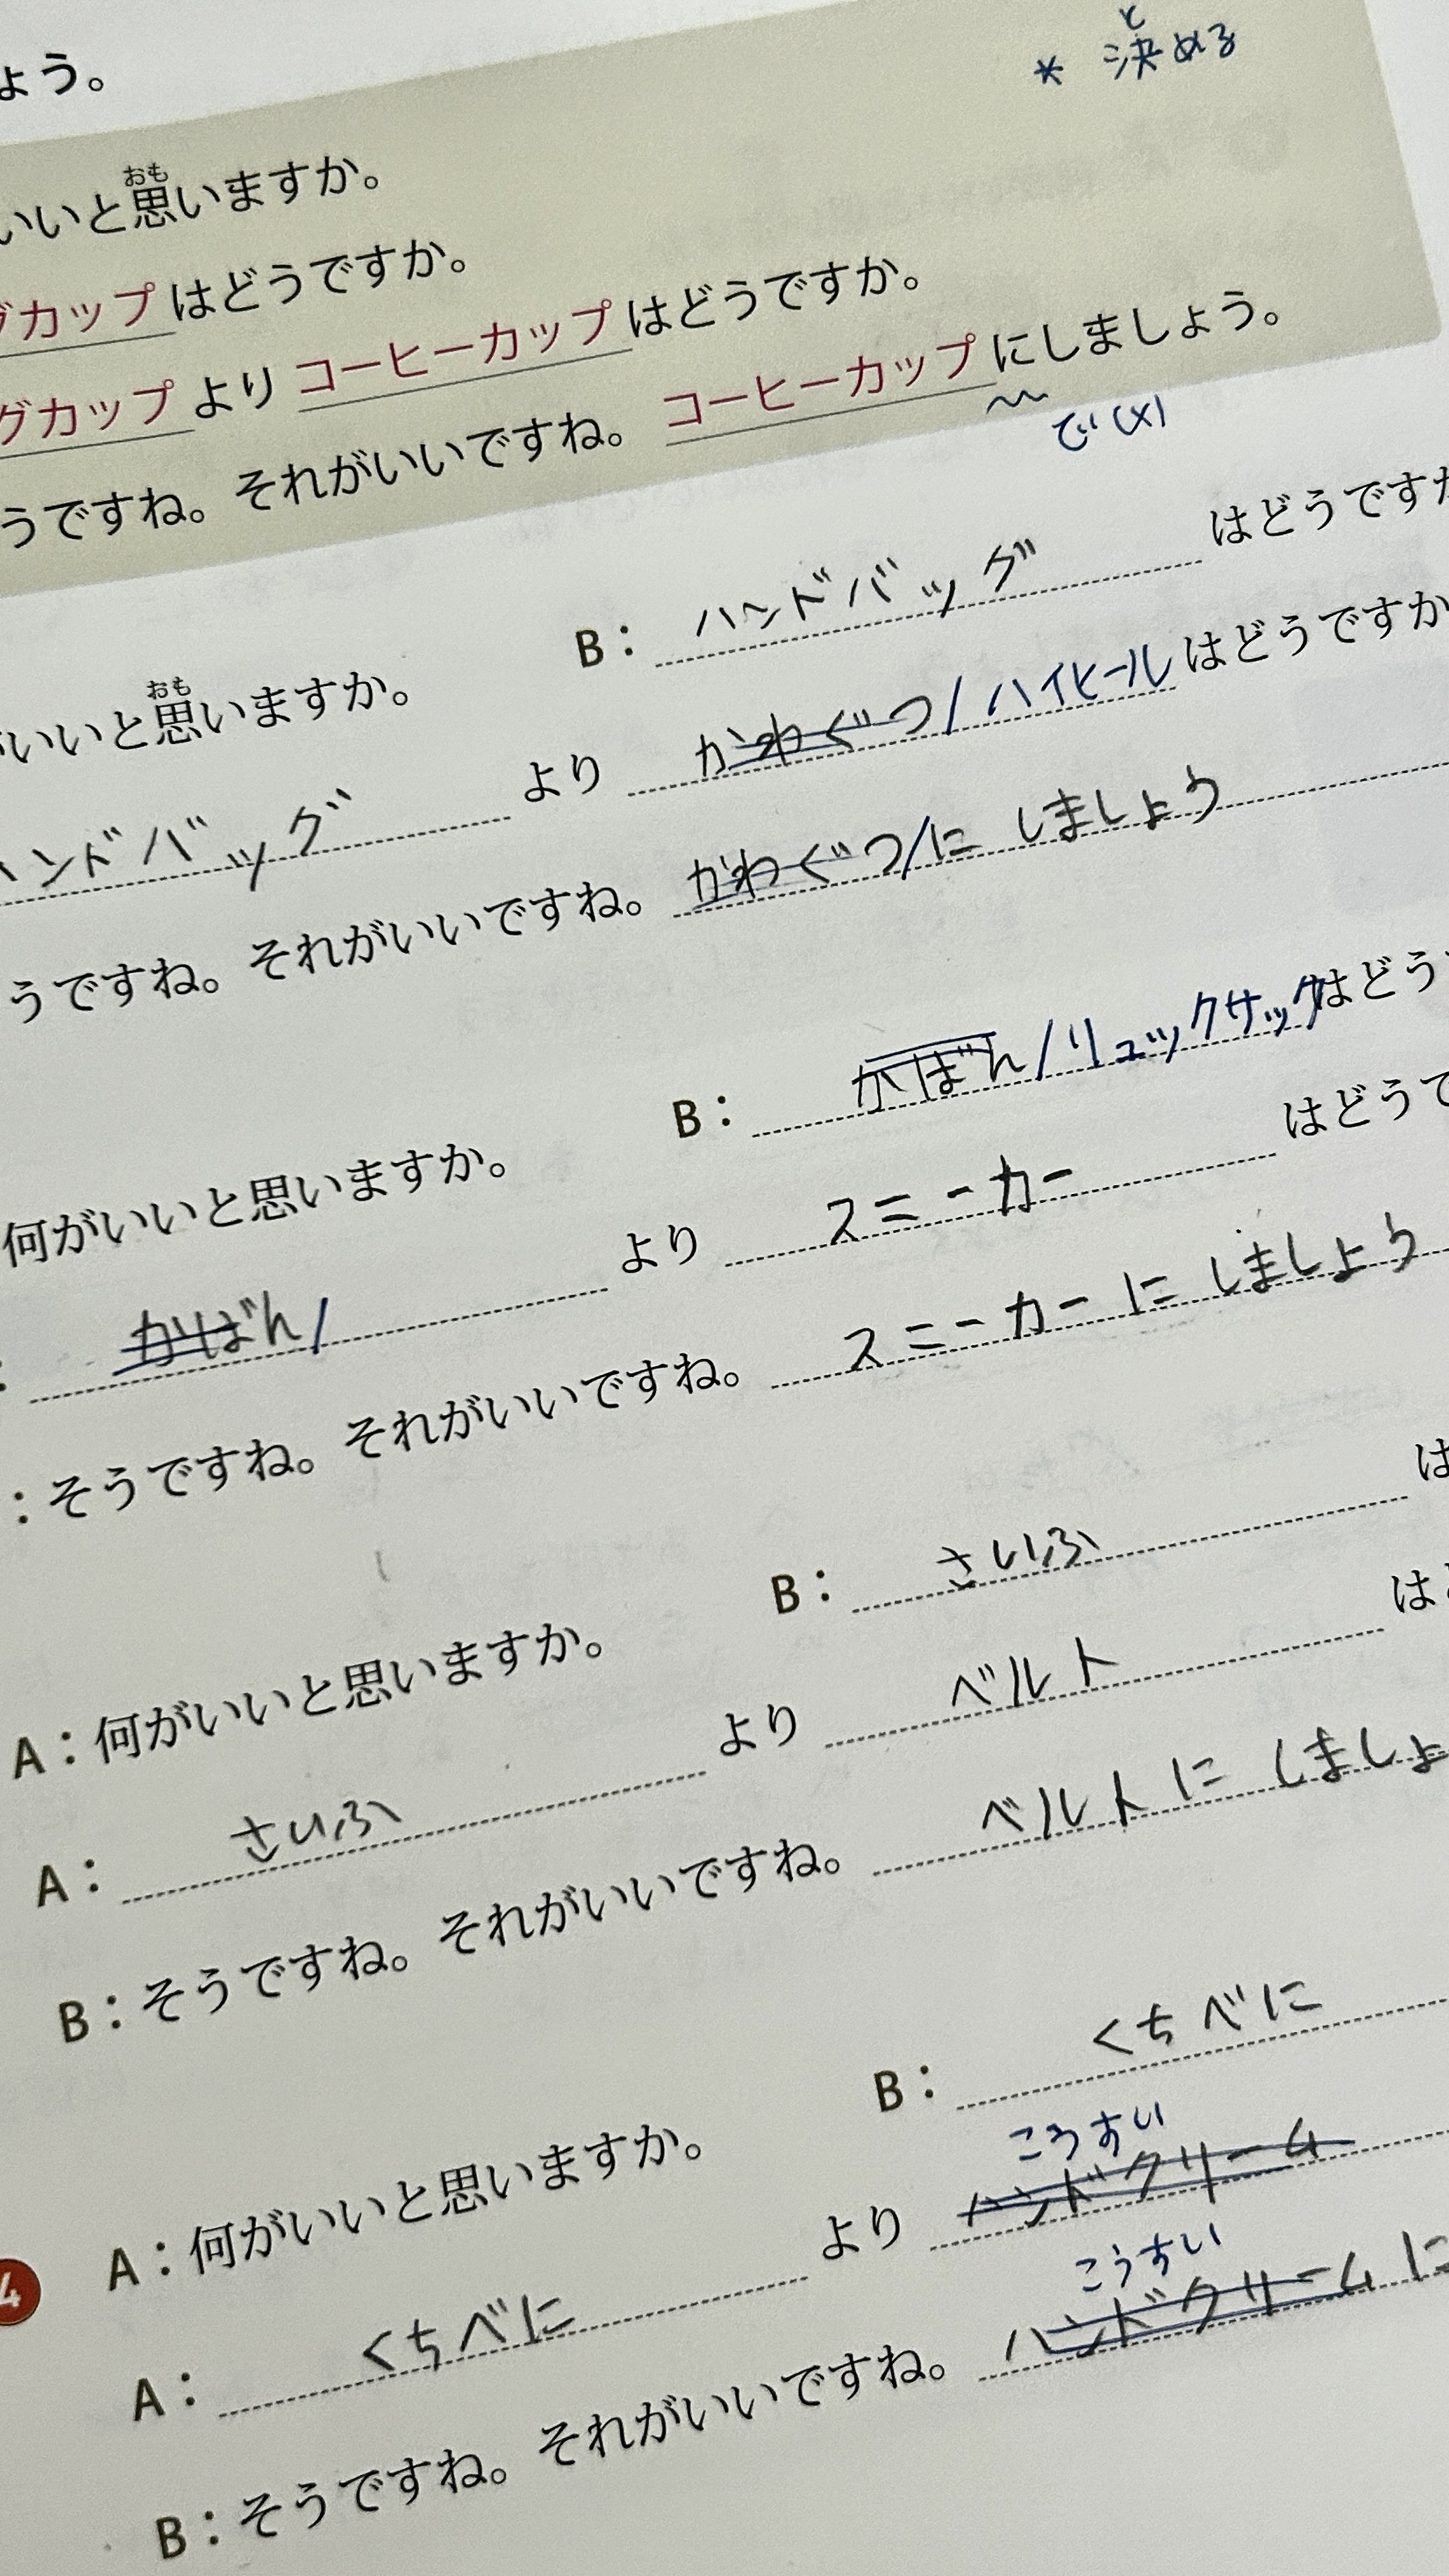 ょう。
* 決める
と
いいと思いますか。
おも
グカップはどうですか。
グカップよりコーヒーカップはどうですか。
うですね。それがいいですね。コーヒーカップにしましょう。
で(x)
B：ハンドバッグはどうですか
がいいと思いますか。
おも
ハンドバッグよりかわぐつ/ハイヒールはどうですか
うですね。それがいいですね。かわぐつ/にしましょう
B：かばん/リュックサックはどう
何がいいと思いますか。
：かばん/よりスニーカーはどうで
：そうですね。それがいいですね。スニーカーにしましょう
B：さいふは
A：何がいいと思いますか。
A：さいふよりベルトは
B：そうですね。それがいいですね。ベルトにしましょ
B：くちべに
4 A：何がいいと思いますか。
こうすい
A：くちべによりハンドクリーム
こうすい
B：そうですね。それがいいですね。ハンドクリームに